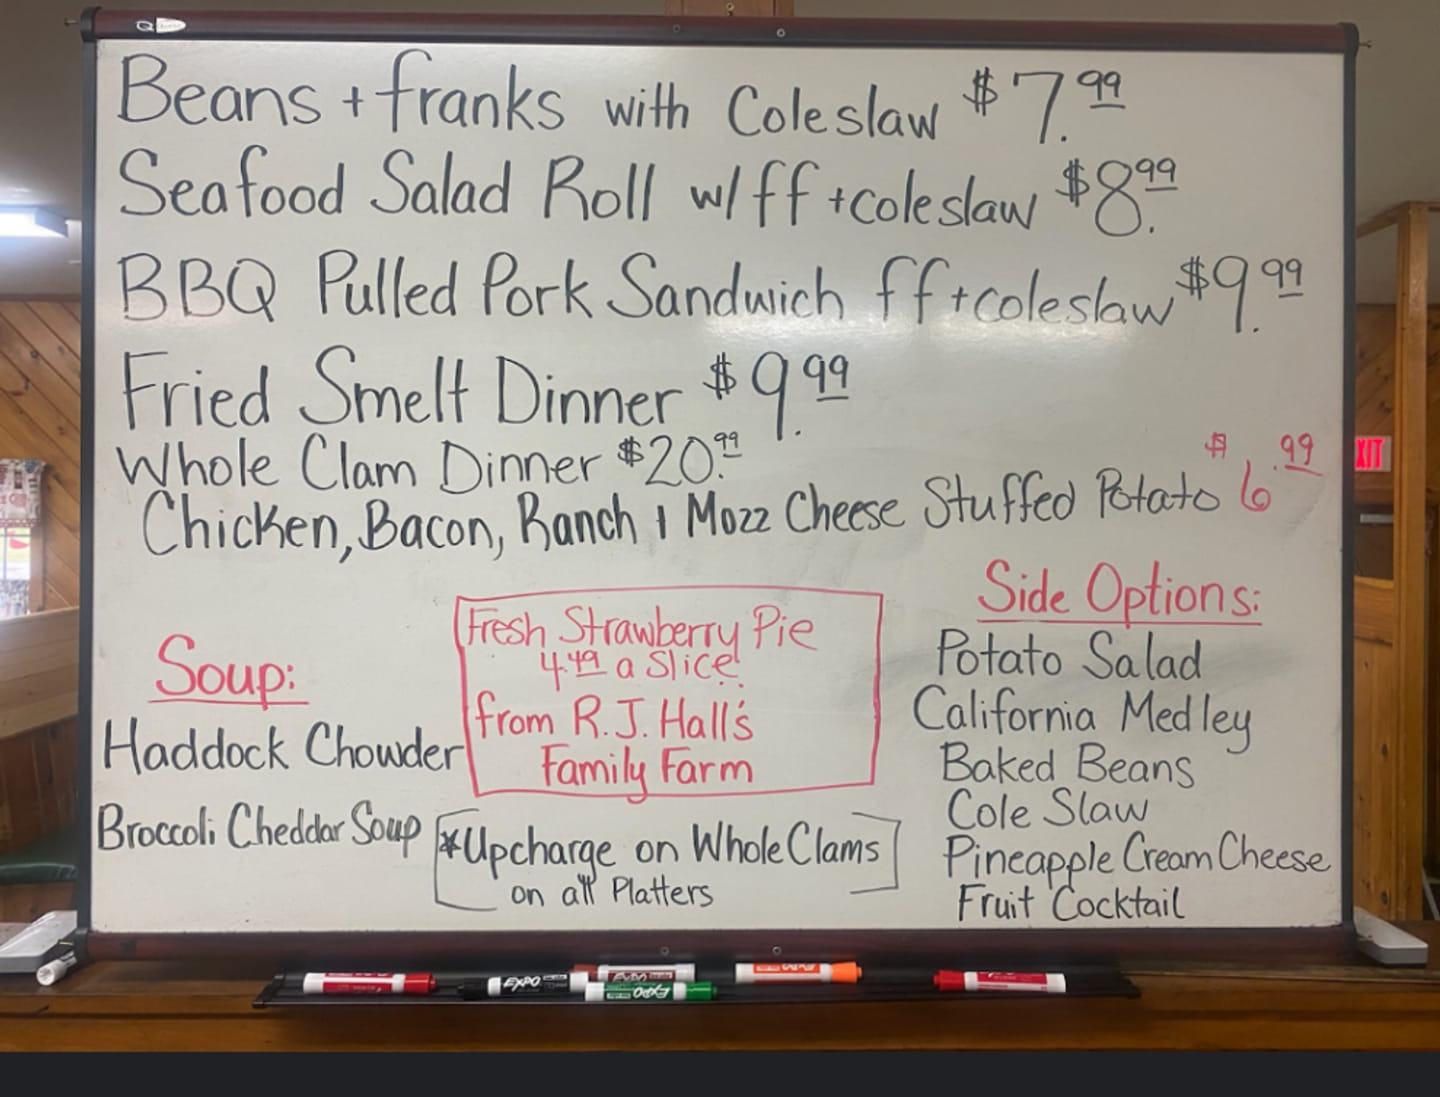 Beans + franks with Coleslaw $7.99
Seafood Salad Roll w/ ff + coleslaw $8.99
BBQ Pulled Pork Sandwich ff + coleslaw $9.99
Fried Smelt Dinner $9.99
Whole Clam Dinner $20.99
Chicken, Bacon, Ranch + Mozz Cheese Stuffed Potato $6.99
Soup:
Haddock Chowder
Broccoli Cheddar Soup
Fresh Strawberry Pie
4.49 a Slice
from R.J. Hall's
Family Farm
*Upcharge on Whole Clams
on all Platters
Side Options:
Potato Salad
California Medley
Baked Beans
Cole Slaw
Pineapple Cream Cheese
Fruit Cocktail
XIT
EXPO
EXPO
EXPO